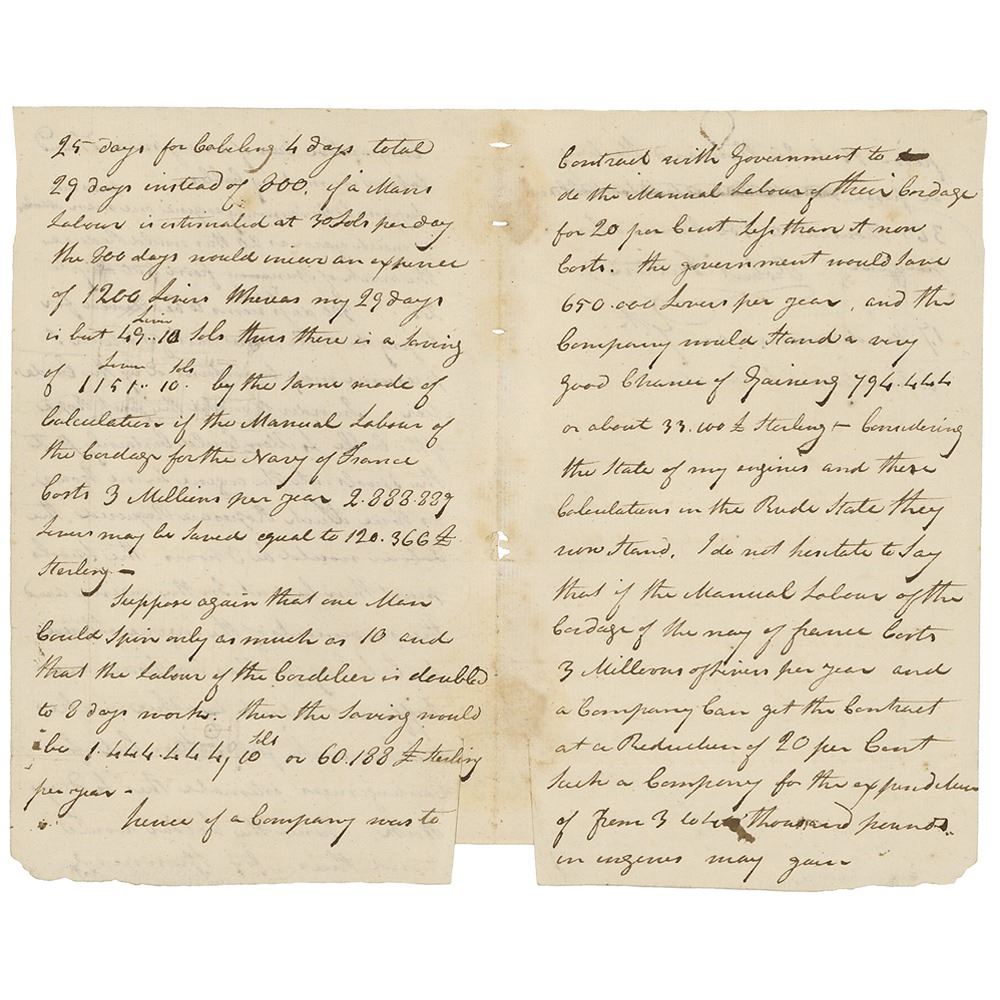 25 days for Cabeling 4 days total
29 days instead of 800. if a Mans
Labour is estimated at 30 Sols per day
the 800 days would incur an expence
of 1200 Livers Whereas my 29 days
Livers
is but 49.. 10 Sols thus there is a Saving
Livers Sols
of 1151.. 10. by the same mode of
Calculation if the Manual Labour of
the Cordage for the Navy of France
Costs 3 Millions per year 2.888.889
Livers may be Saved equal to 120.366 £
Sterling –
Suppose again that one Man
Could Spin only as much as 10 and
that the Labour of the Cordelier is doubled
to 8 days work. then the Saving would
Sols
be 1.444.444, 10 or 60.188 £ Sterling
per year –
hence if a Company was to
Contract with Government to
do the Manual Labour of their Cordage
for 20 per Cent Less than it now
Costs. the government would Save
650.000 Livers per year, and the
Company would Stand a very
good Chance of Gaining 794.444
or about 33.100 £ Sterling – Considering
the State of my engines and these
Calculations in the Rude State they
now Stand. I do not hesitate to Say
that if the Manual Labour of the
Cordage of the navy of france Costs
3 Millions of Livers per year and
a Company Can get the Contract
at a Reduction of 20 per Cent
Such a Company for the expenditure
of from 3 to thousand pounds..
in engines may gain